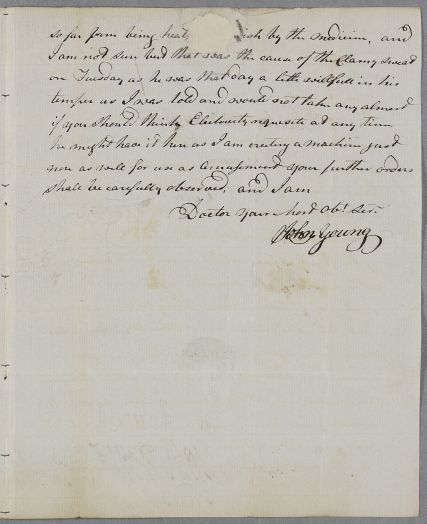 so far form being heat by the medicine, and
I am not sure but that was the cause of the Clamy sweat
on Tuesday as he was that day a little willfull in his
temper as I was told and would not take any almost
if you should think Electricity requisite at any time
he might have it here as I am erecting a machine just
now as well for use as Amusement your further orders
shall be carefully observed, and I am
Doctor your Most Obt. Ser.
John Young